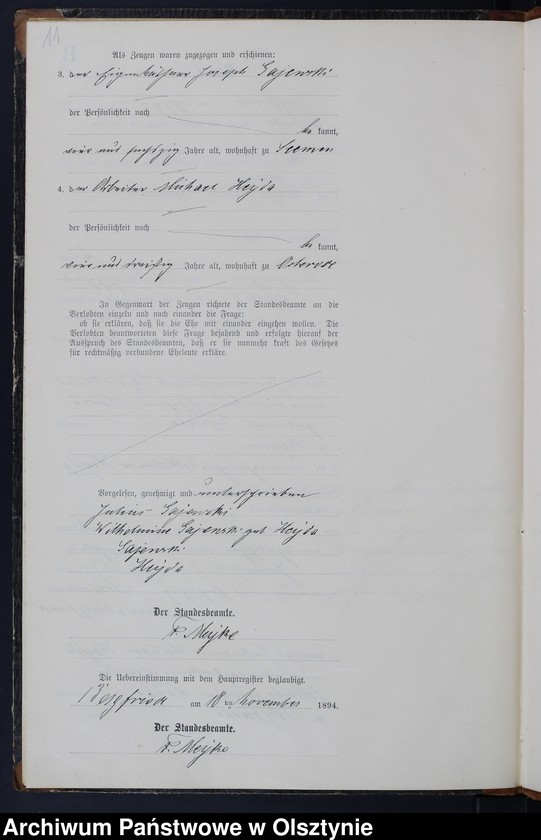 11
Als Zeugen waren zugezogen und erschienen:
3. der Eigenkäthner Joseph Gajewski
der Persönlichkeit nach
be kannt,
vier und sechszig Jahre alt, wohnhaft zu Seemen
4. der Arbeiter Michael Heyda
der Persönlichkeit nach
be kannt,
vier und dreißig Jahre alt, wohnhaft zu Osterode
In Gegenwart der Zeugen richtete der Standesbeamte an die
Verlobten einzeln und nach einander die Frage:
ob sie erklären, daß sie die Ehe mit einander eingehen wollen. Die
Verlobten beantworteten diese Frage bejahend und erfolgte hierauf der
Ausspruch des Standesbeamten, daß er sie nunmehr kraft des Gesetzes
für rechtmäßig verbundene Eheleute erkläre.
Vorgelesen, genehmigt und unterschrieben
Julius Gajewski
Wilhelmine Gajewski geb. Heyda
Gajewski
Heyda
Der Standesbeamte.
Meyke
Die Uebereinstimmung mit dem Hauptregister beglaubigt.
Bergfriede am 18 ten November 1894.
Der Standesbeamte.
Meyke
Archiwum Państwowe w Olsztynie